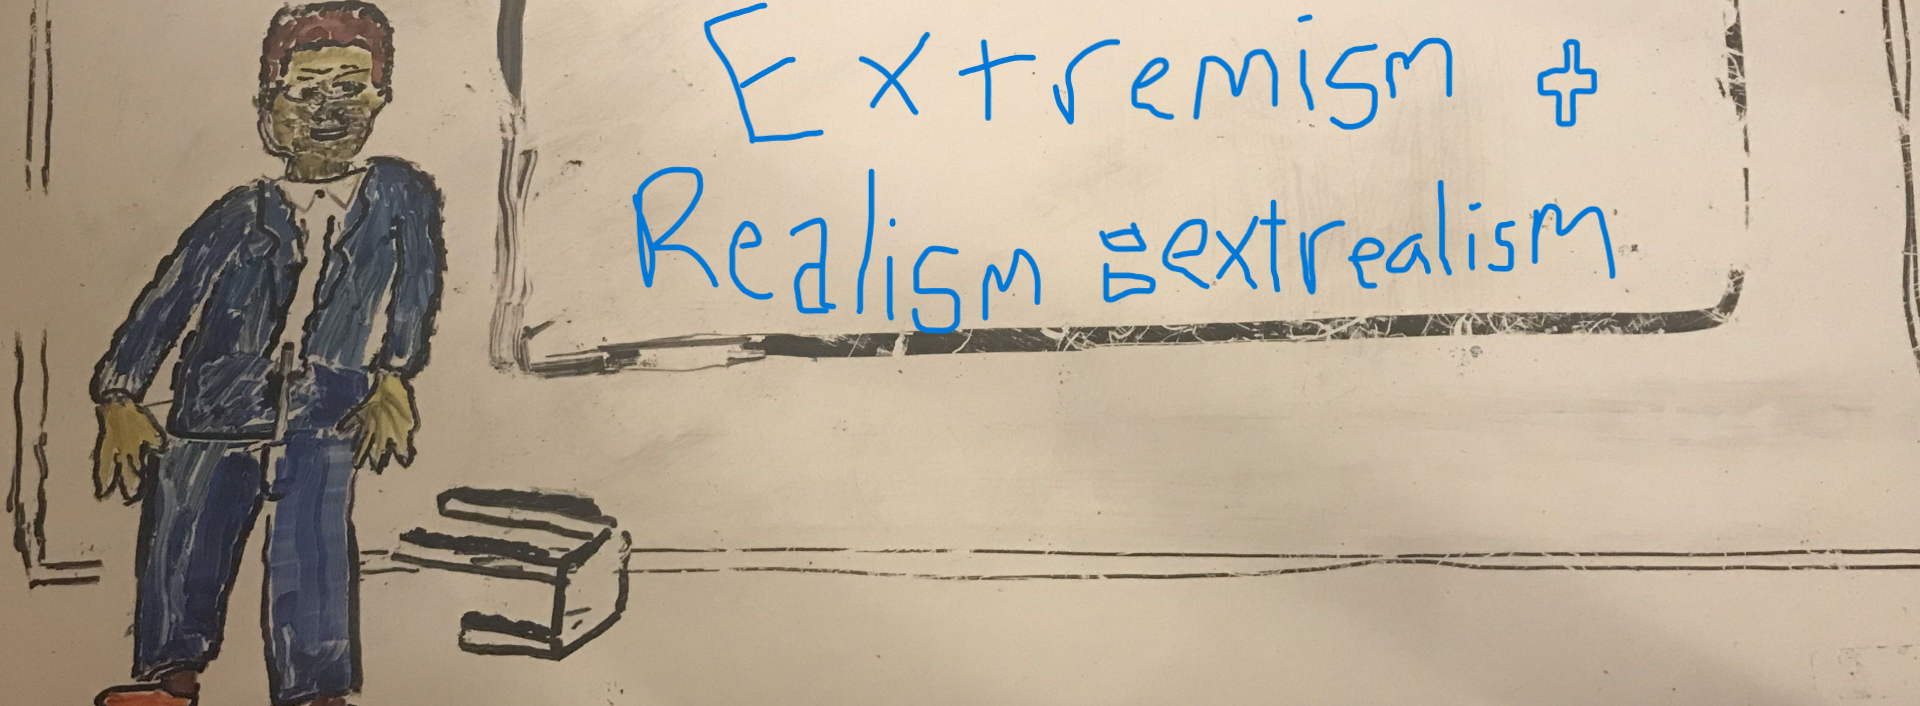 Extremism +
Realism = extrealism